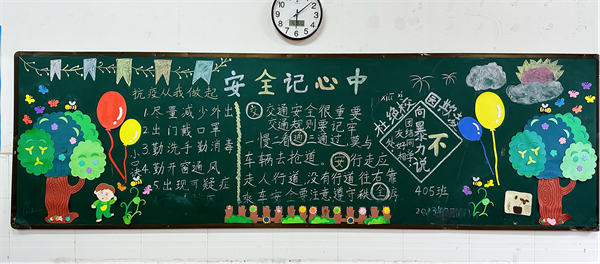 安全记心中
抗疫从我做起
1.尽量减少外出
2.出门戴口罩
3.勤洗手勤消毒
4.勤开窗通风
5.出现可疑症
小口诀
交通安全很重要
交通规则要记牢
慢一看通三通过,莫与
车辆去抢道。安行走应
走人行道,没有行道往右靠
乘车安全要注意遵守秩全序
杜绝校园欺凌
向暴力说
不
团结同学
友好相处
405班